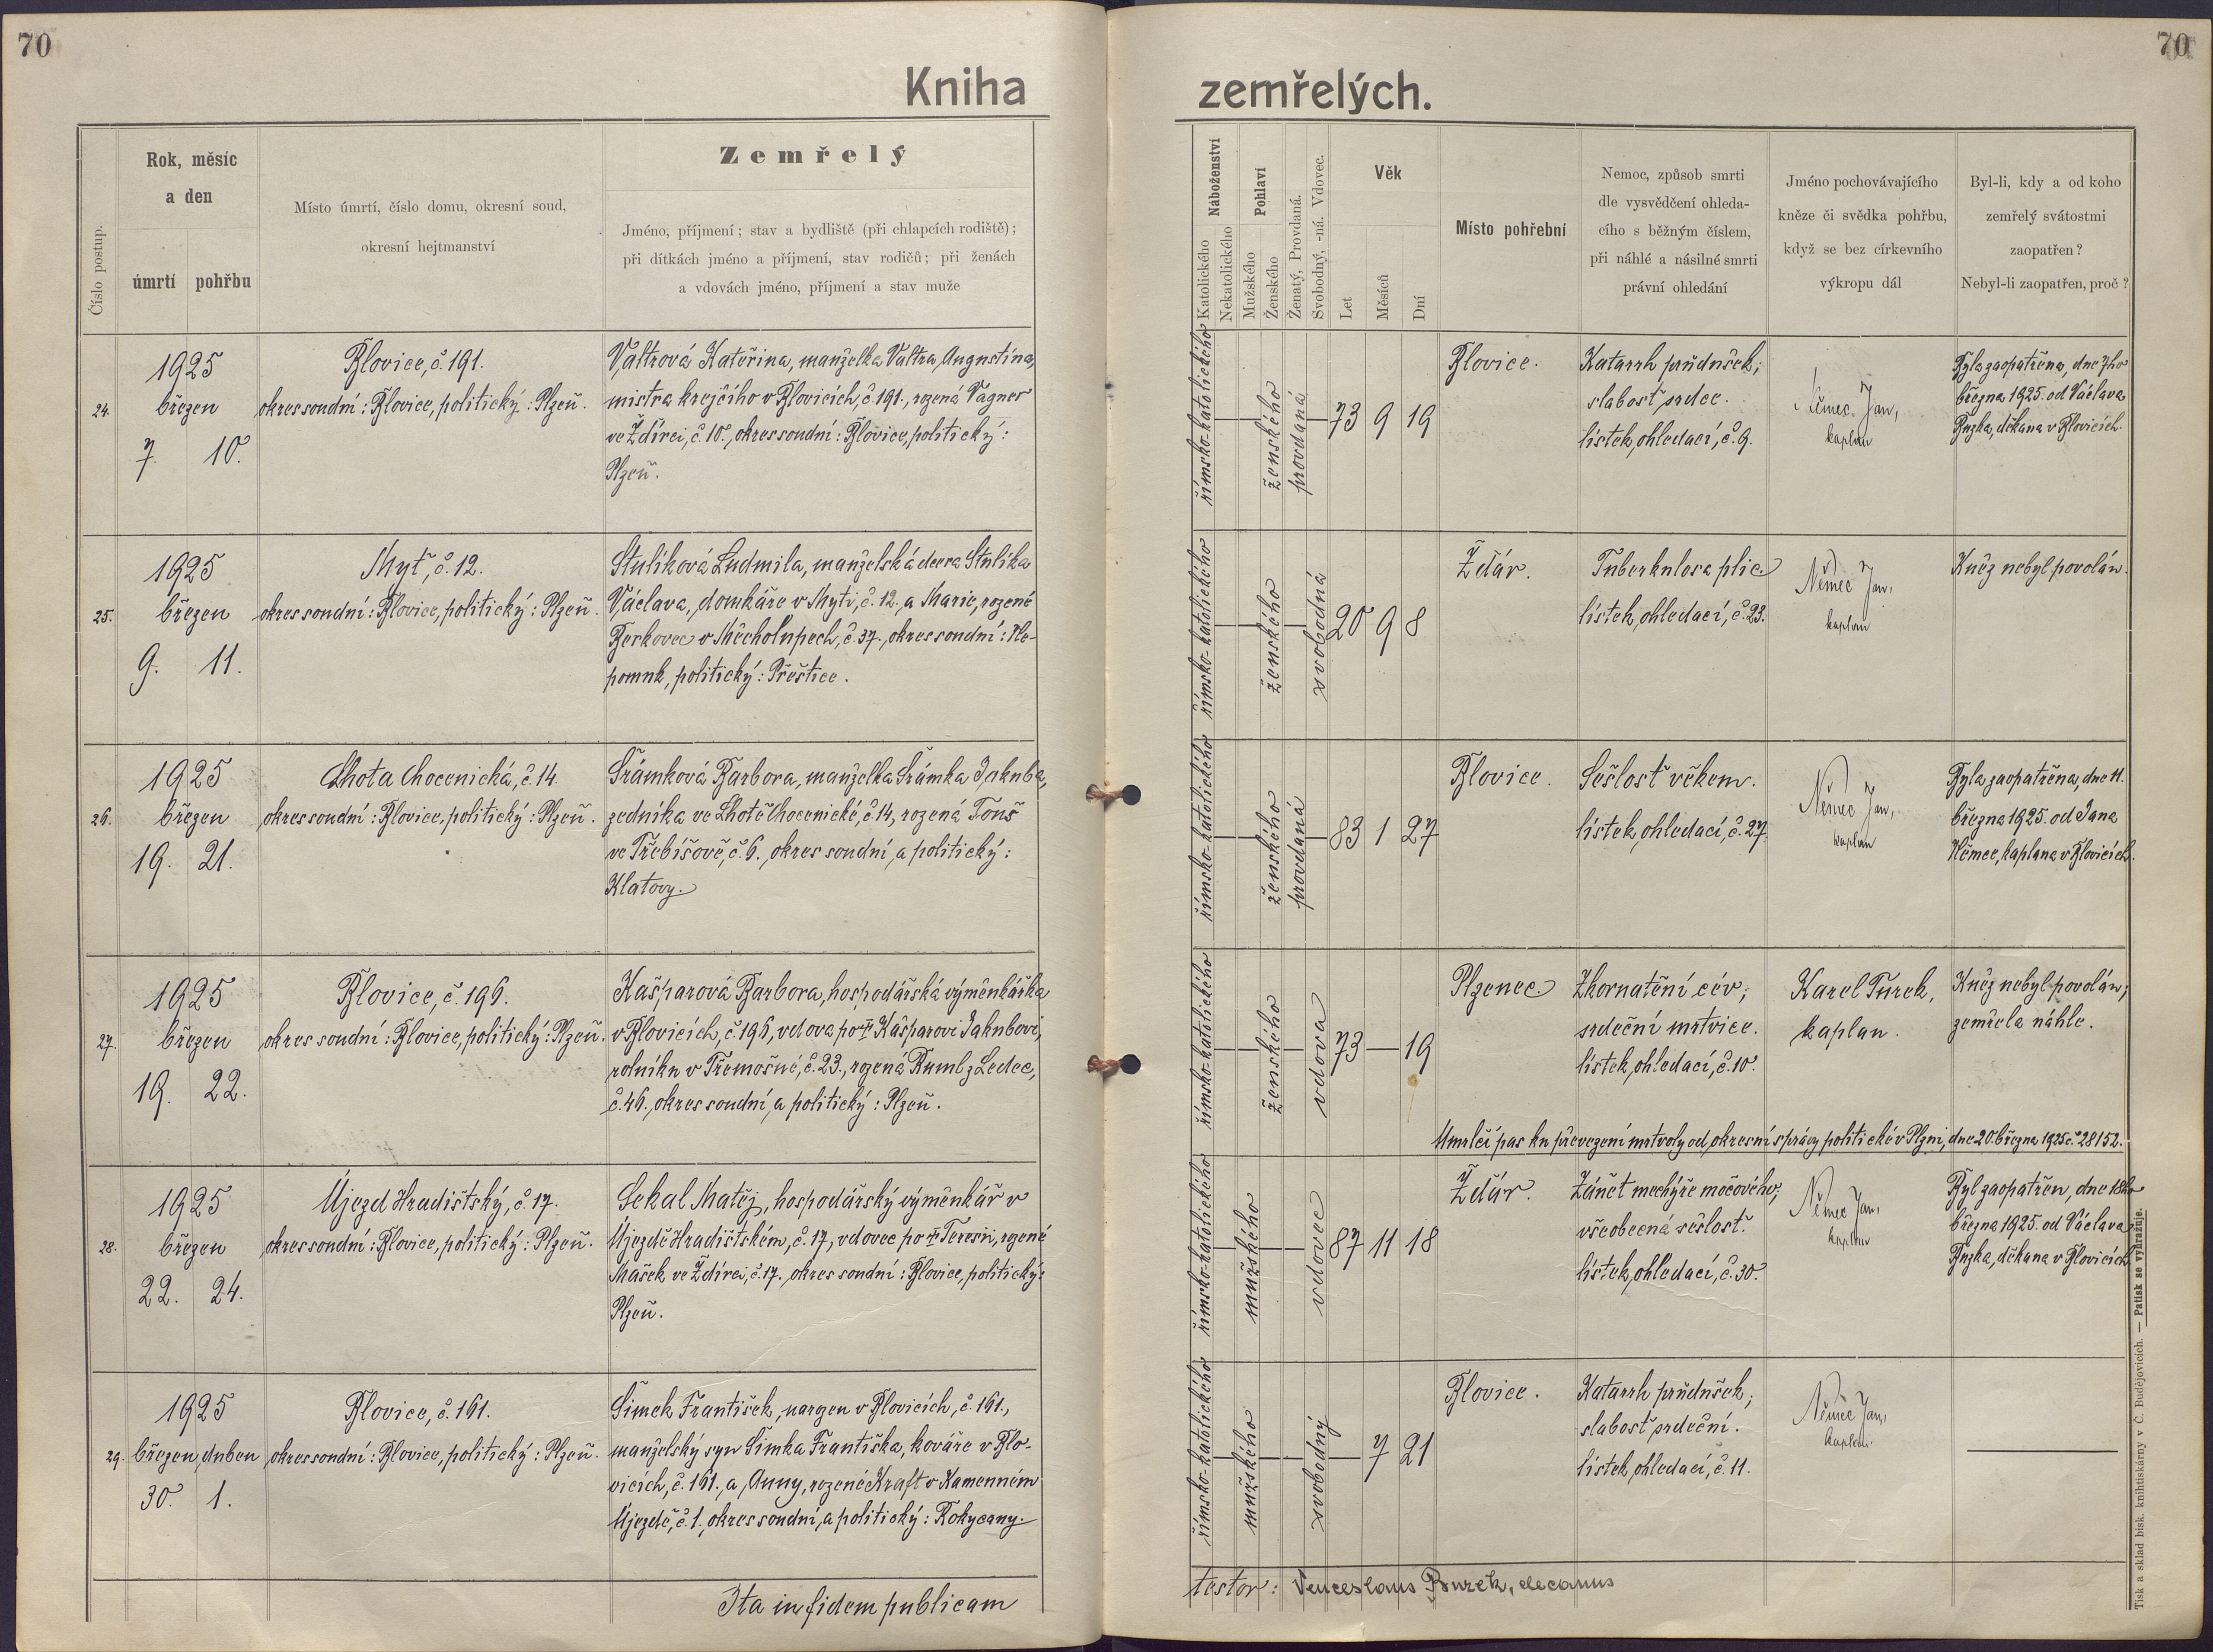 70
70
Kniha zemřelých.
Číslo postup.
Rok, měsíc
a den
úmrtí pohřbu
Místo úmrtí, číslo domu, okresní soud,
okresní hejtmanství
Zemřelý
Jméno, příjmení; stav a bydliště (při chlapcích rodiště);
při dítkách jméno a příjmení, stav rodičů; při ženách
a vdovách jméno, příjmení a stav muže
Náboženství
Katolického
Nekatolického
Pohlaví
Mužského
Ženského
Ženatý, Provdaná.
Svobodný, -ná. Vdovec.
Věk
Let
Měsíců
Dní
Místo pohřební
Nemoc, způsob smrti
dle vysvědčení ohleda-
cího s běžným číslem,
při náhlé a násilné smrti
právní ohledání
Jméno pochovávajícího
kněze či svědka pohřbu,
když se bez církevního
výkropu dál
Byl-li, kdy a od koho
zemřelý svátostmi
zaopatřen?
Nebyl-li zaopatřen, proč?
24.
1925
březen
7. 10.
Blovice, č. 191.
okres soudní: Blovice, politický: Plzeň.
Valtrová Kateřina, manželka Valtra Augustina,
mistra krejčího v Blovicích, č. 191., rozená Vagner
ve Ždírci, č. 10., okres soudní: Blovice, politický:
Plzeň.
římsko-katolického
ženského
provdaná
73 9 19
Blovice.
Katarrh průdušek;
slabosť srdce.
lístek ohledací, č. 9.
Němec Jan,
kaplan
Byla zaopatřena, dne 7ho
března 1925. od Václava
Burka, děkana v Blovicích.
25.
1925
březen
9. 11.
Myť, č. 12.
okres soudní: Blovice, politický: Plzeň.
Stulíková Ludmila, manželská dcera Stulíka
Václava, domkáře v Myti, č. 12., a Marie, rozené
Berkovec v Měcholupech, č. 37., okres soudní: Ne-
pomuk, politický: Přeštice.
římsko-katolického
ženského
svobodná
20 9 8
Ždár.
Tuberkulosa plic
lístek ohledací, č. 23.
Němec Jan,
kaplan
Kněz nebyl povolán.
26.
1925
březen
19. 21.
Lhota Chocenická, č. 14.
okres soudní: Blovice, politický: Plzeň.
Šrámková Barbora, manželka Šrámka Jakuba,
zedníka ve Lhotě Chocenické, č. 14, rozená Touš
ve Třebíšově, č. 6., okres soudní, a politický:
Klatovy.
římsko-katolického
ženského
provdaná
83 1 27
Blovice.
Sešlosť věkem.
lístek ohledací, č. 27.
Němec Jan,
kaplan
Byla zaopatřena, dne 11.
března 1925. od Jana
Němec, kaplana v Blovicích.
27.
1925
březen
19. 22.
Blovice, č. 196.
okres soudní: Blovice, politický: Plzeň.
Kašparová Barbora, hospodářská výměnkářka
v Blovicích, č. 196, vdova po † Kašparovi Jakubovi,
rolníku v Třemošné, č. 23., rozená Ruml z Ledec,
č. 46., okres soudní, a politický: Plzeň.
římsko-katolického
ženského
vdova
73 — 19
Plzenec
Zkornatění cév;
srdeční mrtvice.
lístek ohledací, č. 10.
Karel Turek,
kaplan.
Kněz nebyl povolán;
zemřela náhle.
Umrlčí pas ku převezení mrtvoly od okresní správy politické v Plzni, dne 20. března 1925 č. 28152.
28.
1925
březen
22. 24.
Újezd Hradištský, č. 17.
okres soudní: Blovice, politický: Plzeň.
Sekal Matěj, hospodářský výměnkář v
Újezdě Hradištském, č. 17, vdovec po † Teresii, rozené
Mašek ve Ždírci, č. 17., okres soudní: Blovice, politický:
Plzeň.
římsko-katolického
mužského
vdovec
87 11 18
Ždár.
Zánět mechýře močového;
všeobecná sešlosť.
lístek ohledací, č. 30.
Němec Jan,
kaplan
Byl zaopatřen, dne 18ho
března 1925. od Václava
Burka, děkana v Blovicích
29.
1925
březen, duben
30. 1.
Blovice, č. 161.
okres soudní: Blovice, politický: Plzeň.
Šimek František, narozen v Blovicích, č. 161.,
manželský syn Šimka Františka, kováře v Blo-
vicích, č. 161., a Anny, rozené Kraft v Kamenném
Újezdě, č. 1., okres soudní, a politický: Rokycany.
římsko-katolického
mužského
svobodný
7 21
Blovice.
Katarrh průdušek;
slabosť srdeční.
lístek ohledací, č. 11.
Němec Jan,
kaplan.
Ita in fidem publicam
testor: Venceslaus Burek, decanus
Tisk a sklad bisk. knihtiskárny v Č. Budějovicích. — Patisk se vyhražuje.